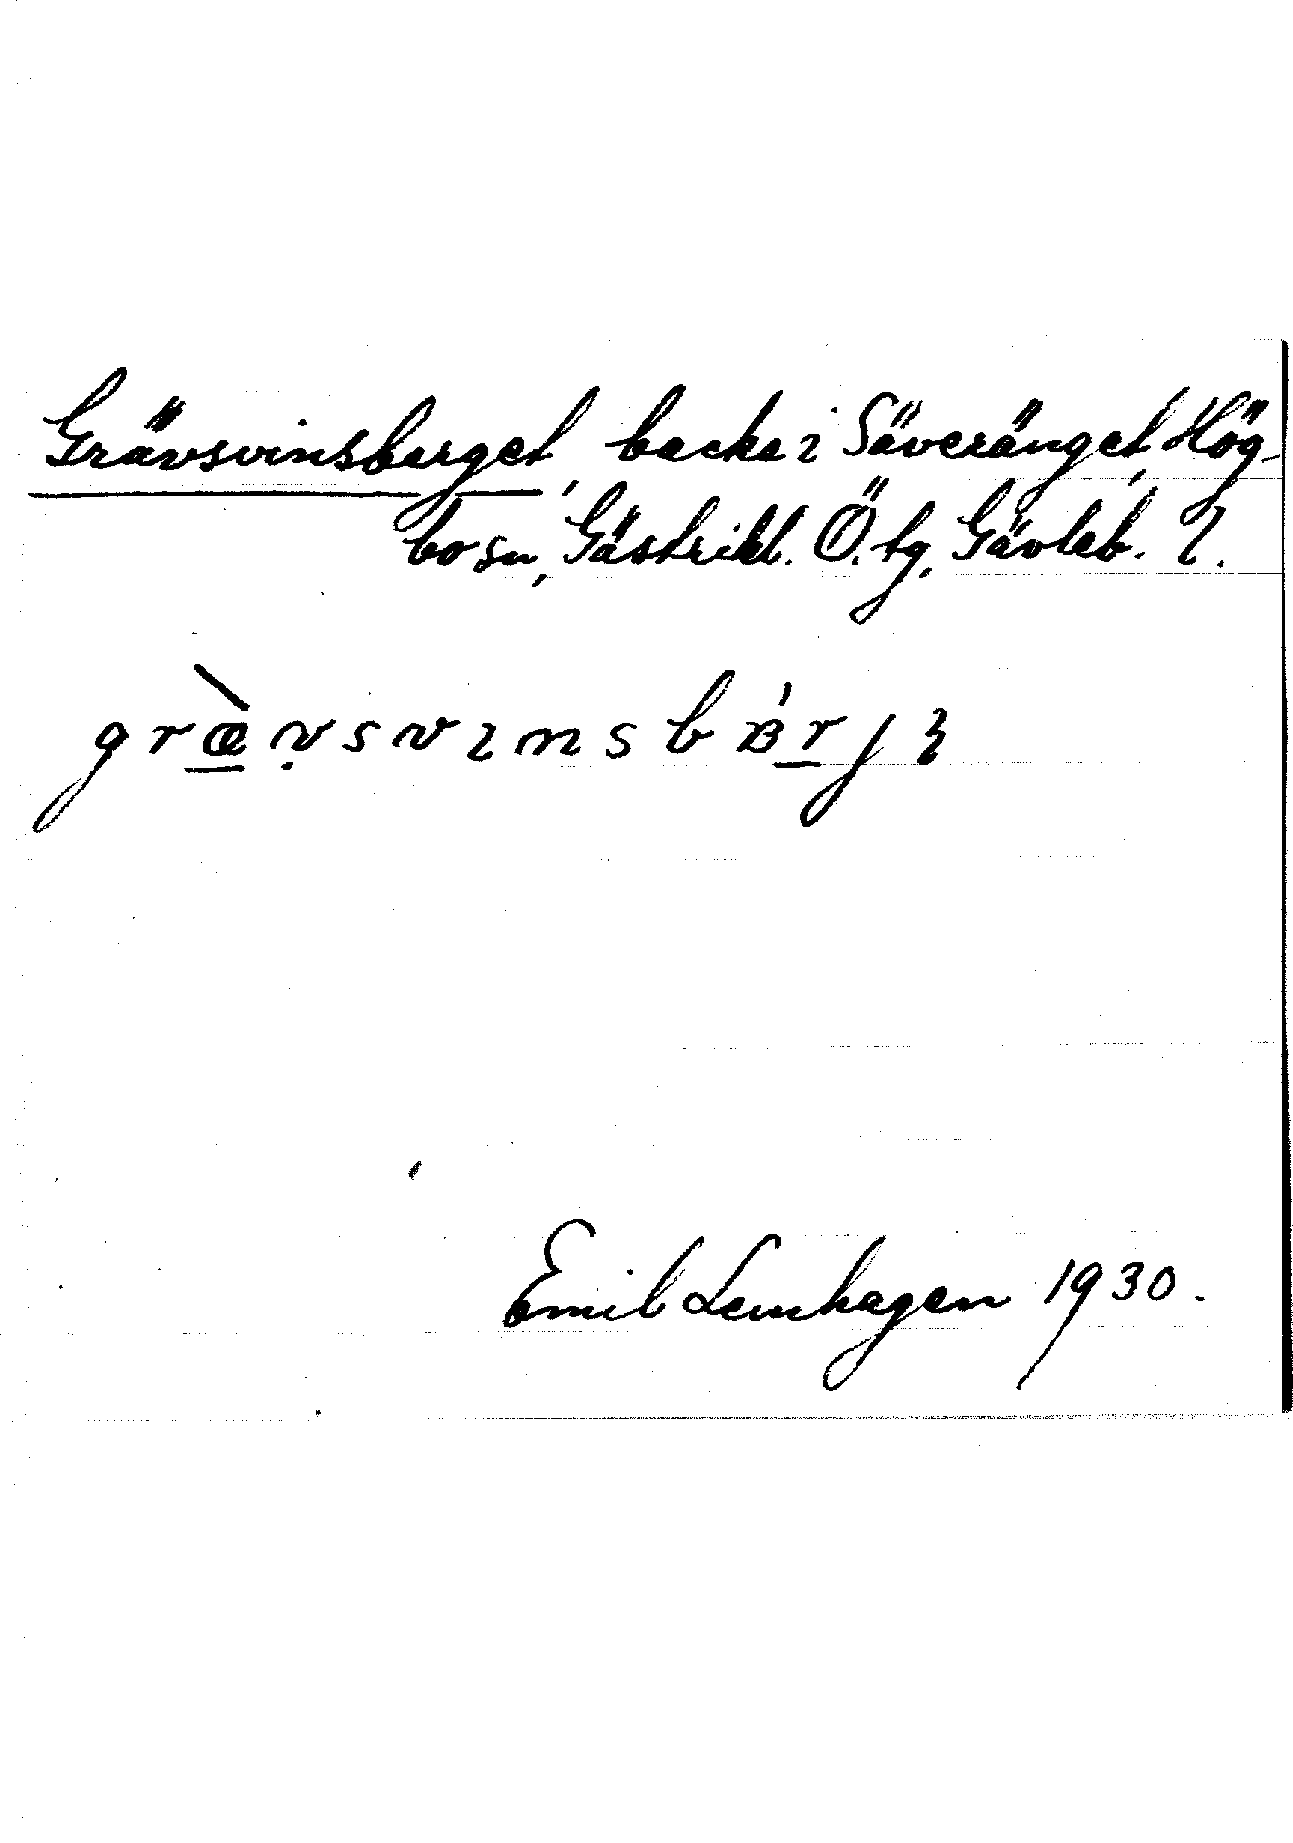 Grävsvinsberget, backe i Säveränget, Hög-
bo sn, Gästrikl. Ö. tg, Gävleb. l.
græ̀vsvinsbʙ́rjɩ
Emil Lemhagen 1930.